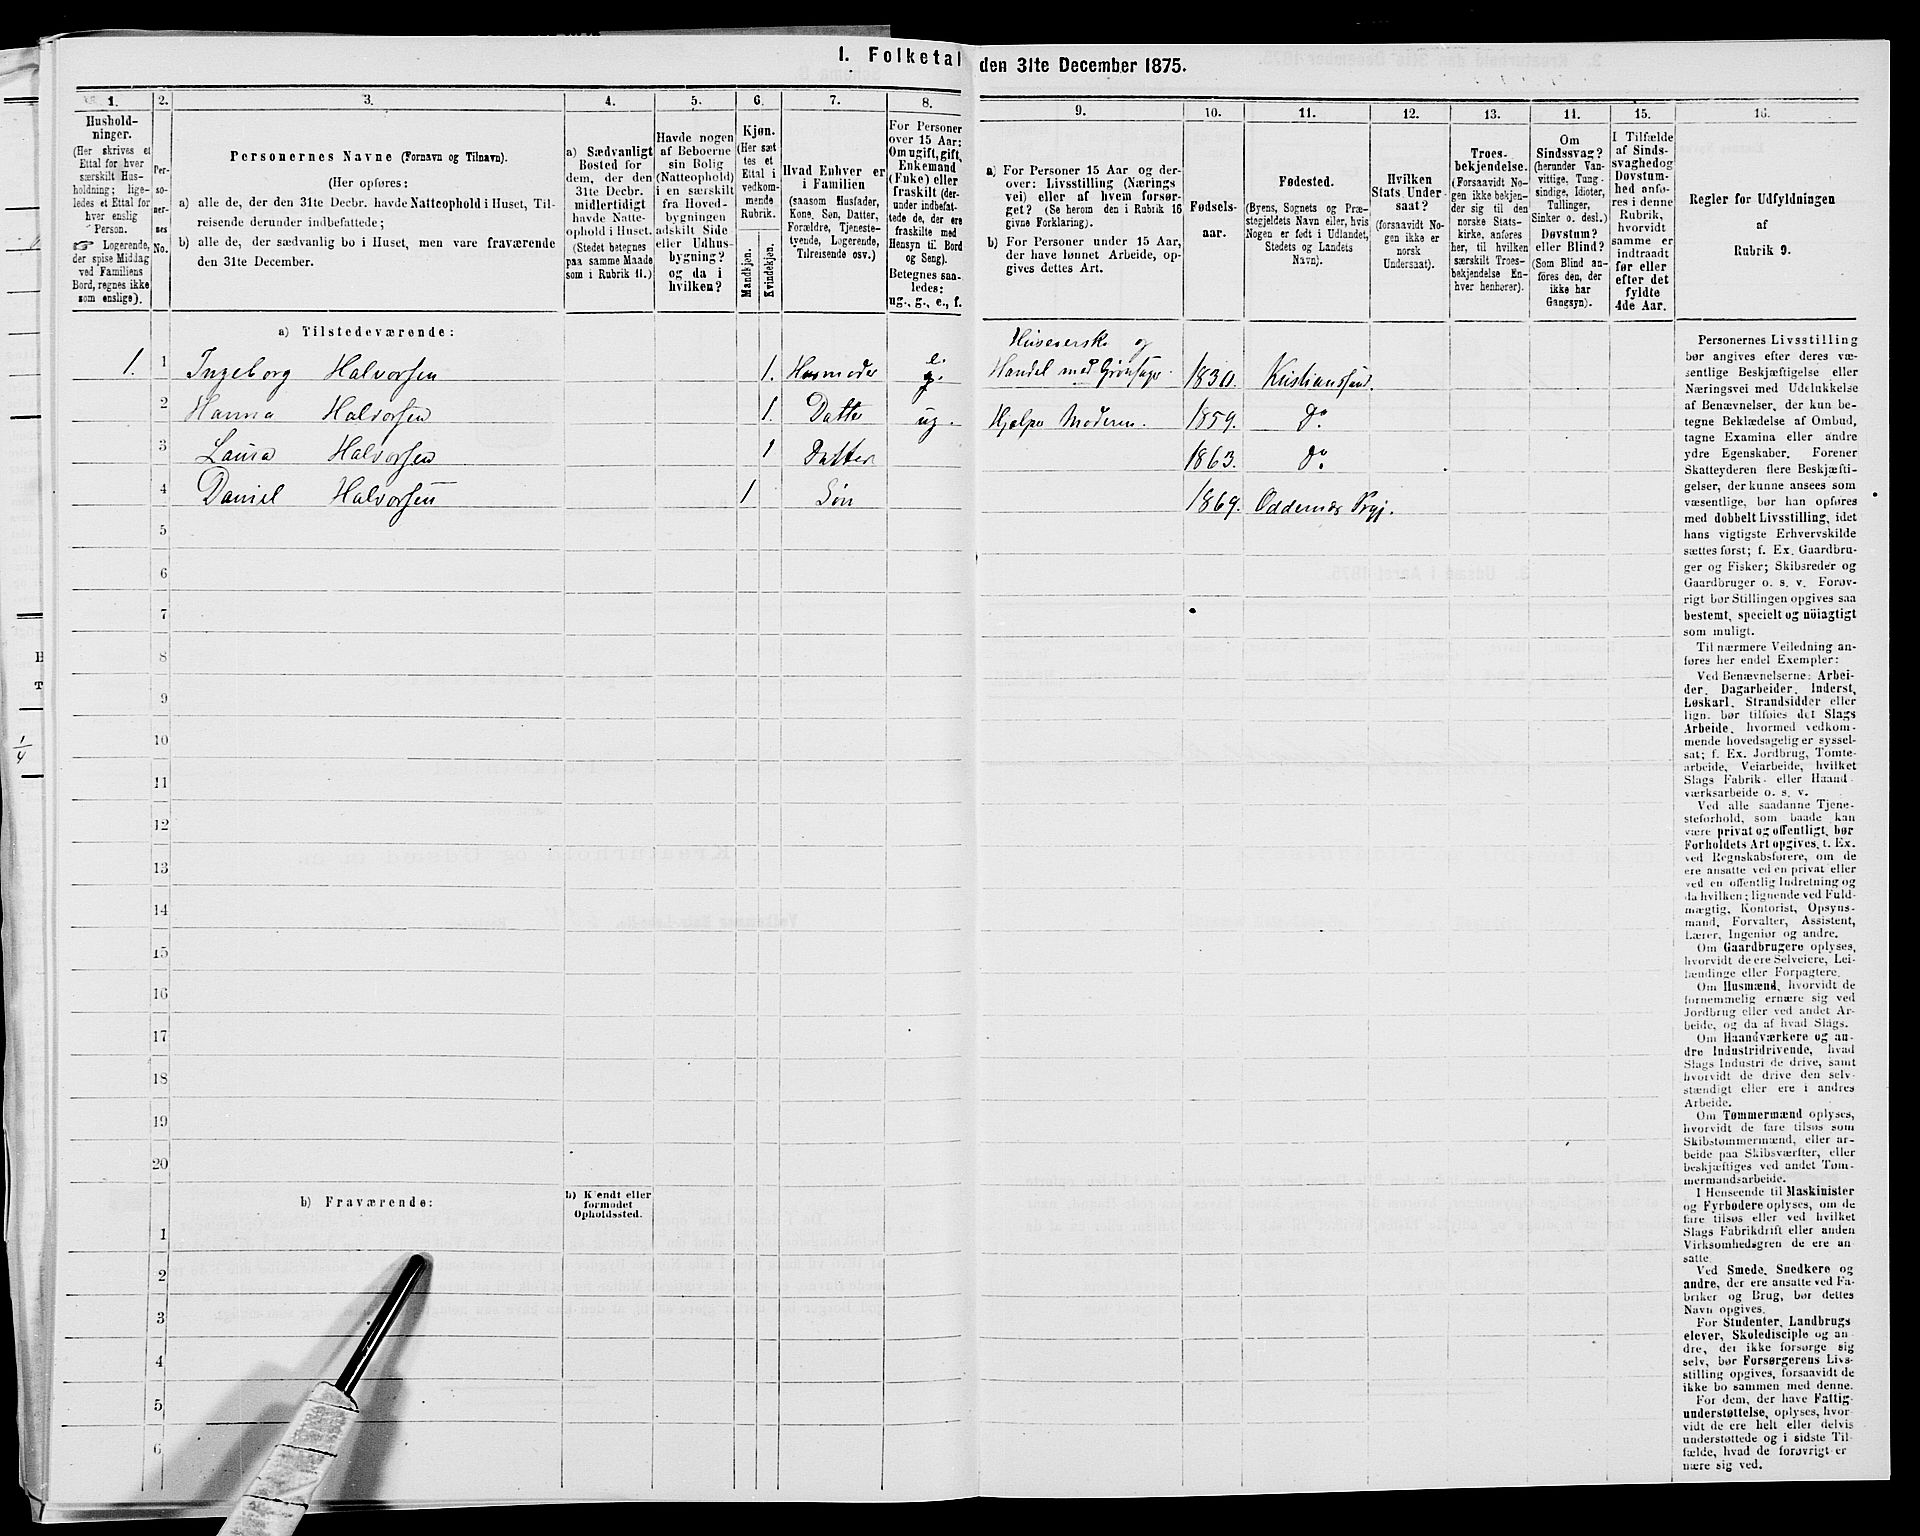 1. Folketal den 31te December 1875.
1. 2. 3. 4. 5. 6. 7. 8. 9. 10. 11. 12. 13. 14. 15. 16.
Hushold-
ninger.
(Her skrives et
Ettal for hver
særskilt Hus-
holdning; lige-
ledes et Ettal for
hver enslig
Person.
☞ Logerende,
der spise Middag
ved Familiens
Bord, regnes ikke
som enslige).
Per-
so-
ner-
nes
No.
Personernes Navne (Fornavn og Tilnavn).
(Her opføres:
a) alle de, der den 31te Decbr. havde Natteophold i Huset, Til-
reisende derunder indbefattede;
b) alle de, der sædvanlig bo i Huset, men vare fraværende
den 31te December.
a) Sædvanligt
Bosted for
dem, der den
31te Decbr.
midlertidigt
havde Natte-
ophold i Huset.
(Stedet betegnes
paa samme Maade
som i Rubrik 11.)
Havde nogen
af Beboerne
sin Bolig
(Natteophold)
i en særskilt
fra Hoved-
bygningen
adskilt Side
eller Udhus-
bygning?
og da i
hvilken?
Kjøn.
(Her sæt
tes et
Ettal i
vedkom-
mende
Rubrik.
Mandkjøn.
Kvindekjøn.
Hvad Enhver er
i Familien
(saasom Husfader,
Kone, Søn, Datter,
Forældre, Tjeneste-
tyende, Logerende,
Tilreisende osv.)
For Personer
over 15 Aar:
Om ugift, gift,
Enkemand
(Enke) eller
fraskilt (der-
under indbefat-
tede de, der ere
fraskilte med
Hensyn til Bord
og Seng).
Betegnes saa-
ledes:
ug., g., e., f.
a) For Personer 15 Aar og der-
over: Livsstilling (Nærings
vei) eller af hvem forsør-
get? (Se herom den i Rubrik 16
givne Forklaring).
b) For Personer under 15 Aar,
der have lønnet Arbeide, op-
gives dettes Art.
Fødsels-
aar.
Fødested.
(Byens, Sognets og Præ-
stegjeldets Navn eller, hvis
Nogen er født i Udlandet,
Stedets og Landets
Navn).
Hvilken
Stats Under-
saat?
(forsaavidt No-
gen ikke er
norsk
Undersaat).
Troes-
bekjendelse.
(Forsaavidt No-
gen ikke bekjen-
der sig til den
norske Stats-
kirke, anføres
her, til hvilken
særskilt Troes-
bekjendelse En-
hver henhører).
Om
Sindssvag?
(herunder Van-
vittige, Tung-
sindige, Idioter,
Tullinger,
Sinker o. desl.)
Døvstum?
eller Blind?
(Som Blind an-
føres den, der
ikke har
Gangsyn).
I Tilfælde
af Sinds-
svaghed og
Døvstum-
hed anfø-
res i denne
Rubrik,
hvorvidt
samme er
indtraadt
før eller
efter det
fyldte
4de Aar.
Regler for Udfyldningen
af
Rubrik 9.
a) Tilstedeværende:
Huseierske og
1. 1 Ingeborg Halvorsen 1. Husmoder e. g. Handel med Grønsager. 1830. Kristianssand.
2 Hanna Halvorsen 1. Datter ug. Hjælper Moderen. 1859. Do
3 Laura Halvorsen 1 Datter 1863. Do
4 Daniel Halvorsen 1 Søn 1869. Oddernæs Prgj.
5
6
7
8
9
10
11
12
13
14
15
16
17
18
19
20
b) Fraværende:
b) Kjendt eller
formodet
Opholdssted.
1
2
3
4
5
6
Personernes Livsstilling
bør angives efter deres væ-
sentlige Beskjæftigelse eller
Næringsvei med Udelukkelse
af Benævnelser, der kun be-
tegne Beklædelse af Ombud,
tagne Examina eller andre
ydre Egenskaber. Forener
Skatteyderen flere Beskjæfti-
gelser, der kunne ansees som
væsentlige, bør han opføres
med dobbelt Livsstilling, idet
hans vigtigste Erhvervskilde
sættes først; f. Ex. Gaardbru-
ger og Fisker; Skibsreder og
Gaardbruger o. s. v. Forøv-
rigt bør Stillingen opgives saa
bestemt, specielt og nöiagtigt
som muligt.
Til nærmere Veiledning an-
føres her endel Exempler:
Ved Benævnelserne: Arbei-
der, Dagarbeider, Inderst,
Løskarl, Strandsidder eller
lign. bør tilføies det Slags
Arbeide, hvormed vedkom-
mende hovedsagelig er syssel-
sat; f. Ex. Jordbrug, Tomte-
arbeide, Veiarbeide, hvilket
Slags Fabrik- eller Haand-
værksarbeide o. s. v.
Ved alle saadanne Tjene-
steforhold, som baade kan
være privat og offentligt, bør
Forholdets Art opgives, t. Ex.
ved Regnskabsførere, om de
ere ansatte ved en privat eller
ved en offentlig Indretning og
da hvilken; lignende ved Fuld-
mægtig, Kontorist, Opsyns-
mand, Forvalter, Assistent,
Lærer, Ingeniør og andre.
Om Gaardbrugere oplyses,
hvorvidt de ere Selveiere, Lei-
lændinge eller Forpagtere.
Om Husmænd, hvorvidt de
fornemmelig ernære sig ved
Jordbrug eller ved andet Ar-
beide, og da af hvad Slags.
Om Haandværkere og an-
dre Industridrivende, hvad
Slags Industri de drive, samt
hvorvidt de drive den selv-
stændigt eller ere i andres
Arbeide.
Om Tømmermænd oplyses,
hvorvidt de fare tilsøs som
Skibstømmermænd, eller ar-
beide paa Skibsværfter, eller
beskjæftiges ved andet Tøm-
mermandsarbeide.
I Henseende til Maskinister
og Fyrbødere oplyses, om de
fare tilsøs eller ved hvilket
Slags Fabrikdrift eller anden
Virksomhedsgren de ere an-
satte.
Ved Smede, Snedkere og
andre, der ere ansatte ved Fa-
briker og Brug, bør dettes
Navn opgives.
For Studenter, Landbrugs
elever, Skoledisciple og an-
dre, der ikke forsørge sig
selv, bør Forsørgerens Livs-
stilling opgives, forsaavidt de
ikke bo sammen med denne.
For dem, der have Fattig-
understøttelse, oplyses, hvor-
vidt de ere helt eller delvis
understøttede og i sidste Til-
fælde, hvad de forøvrigt er-
nære sig ved.